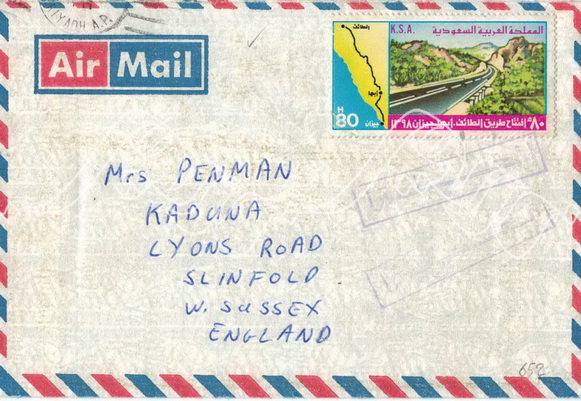 RIYADH A.P.
Air Mail
K.S.A.
المملكة العربية السعودية
الطائف
أبها
جيزان
H
80
٨٠ افتتاح طريق الطائف. أبها جيزان ١٣٩٨
Mrs PENMAN
KADUNA
LYONS ROAD
SLINFOLD
W. SUSSEX
ENGLAND
652